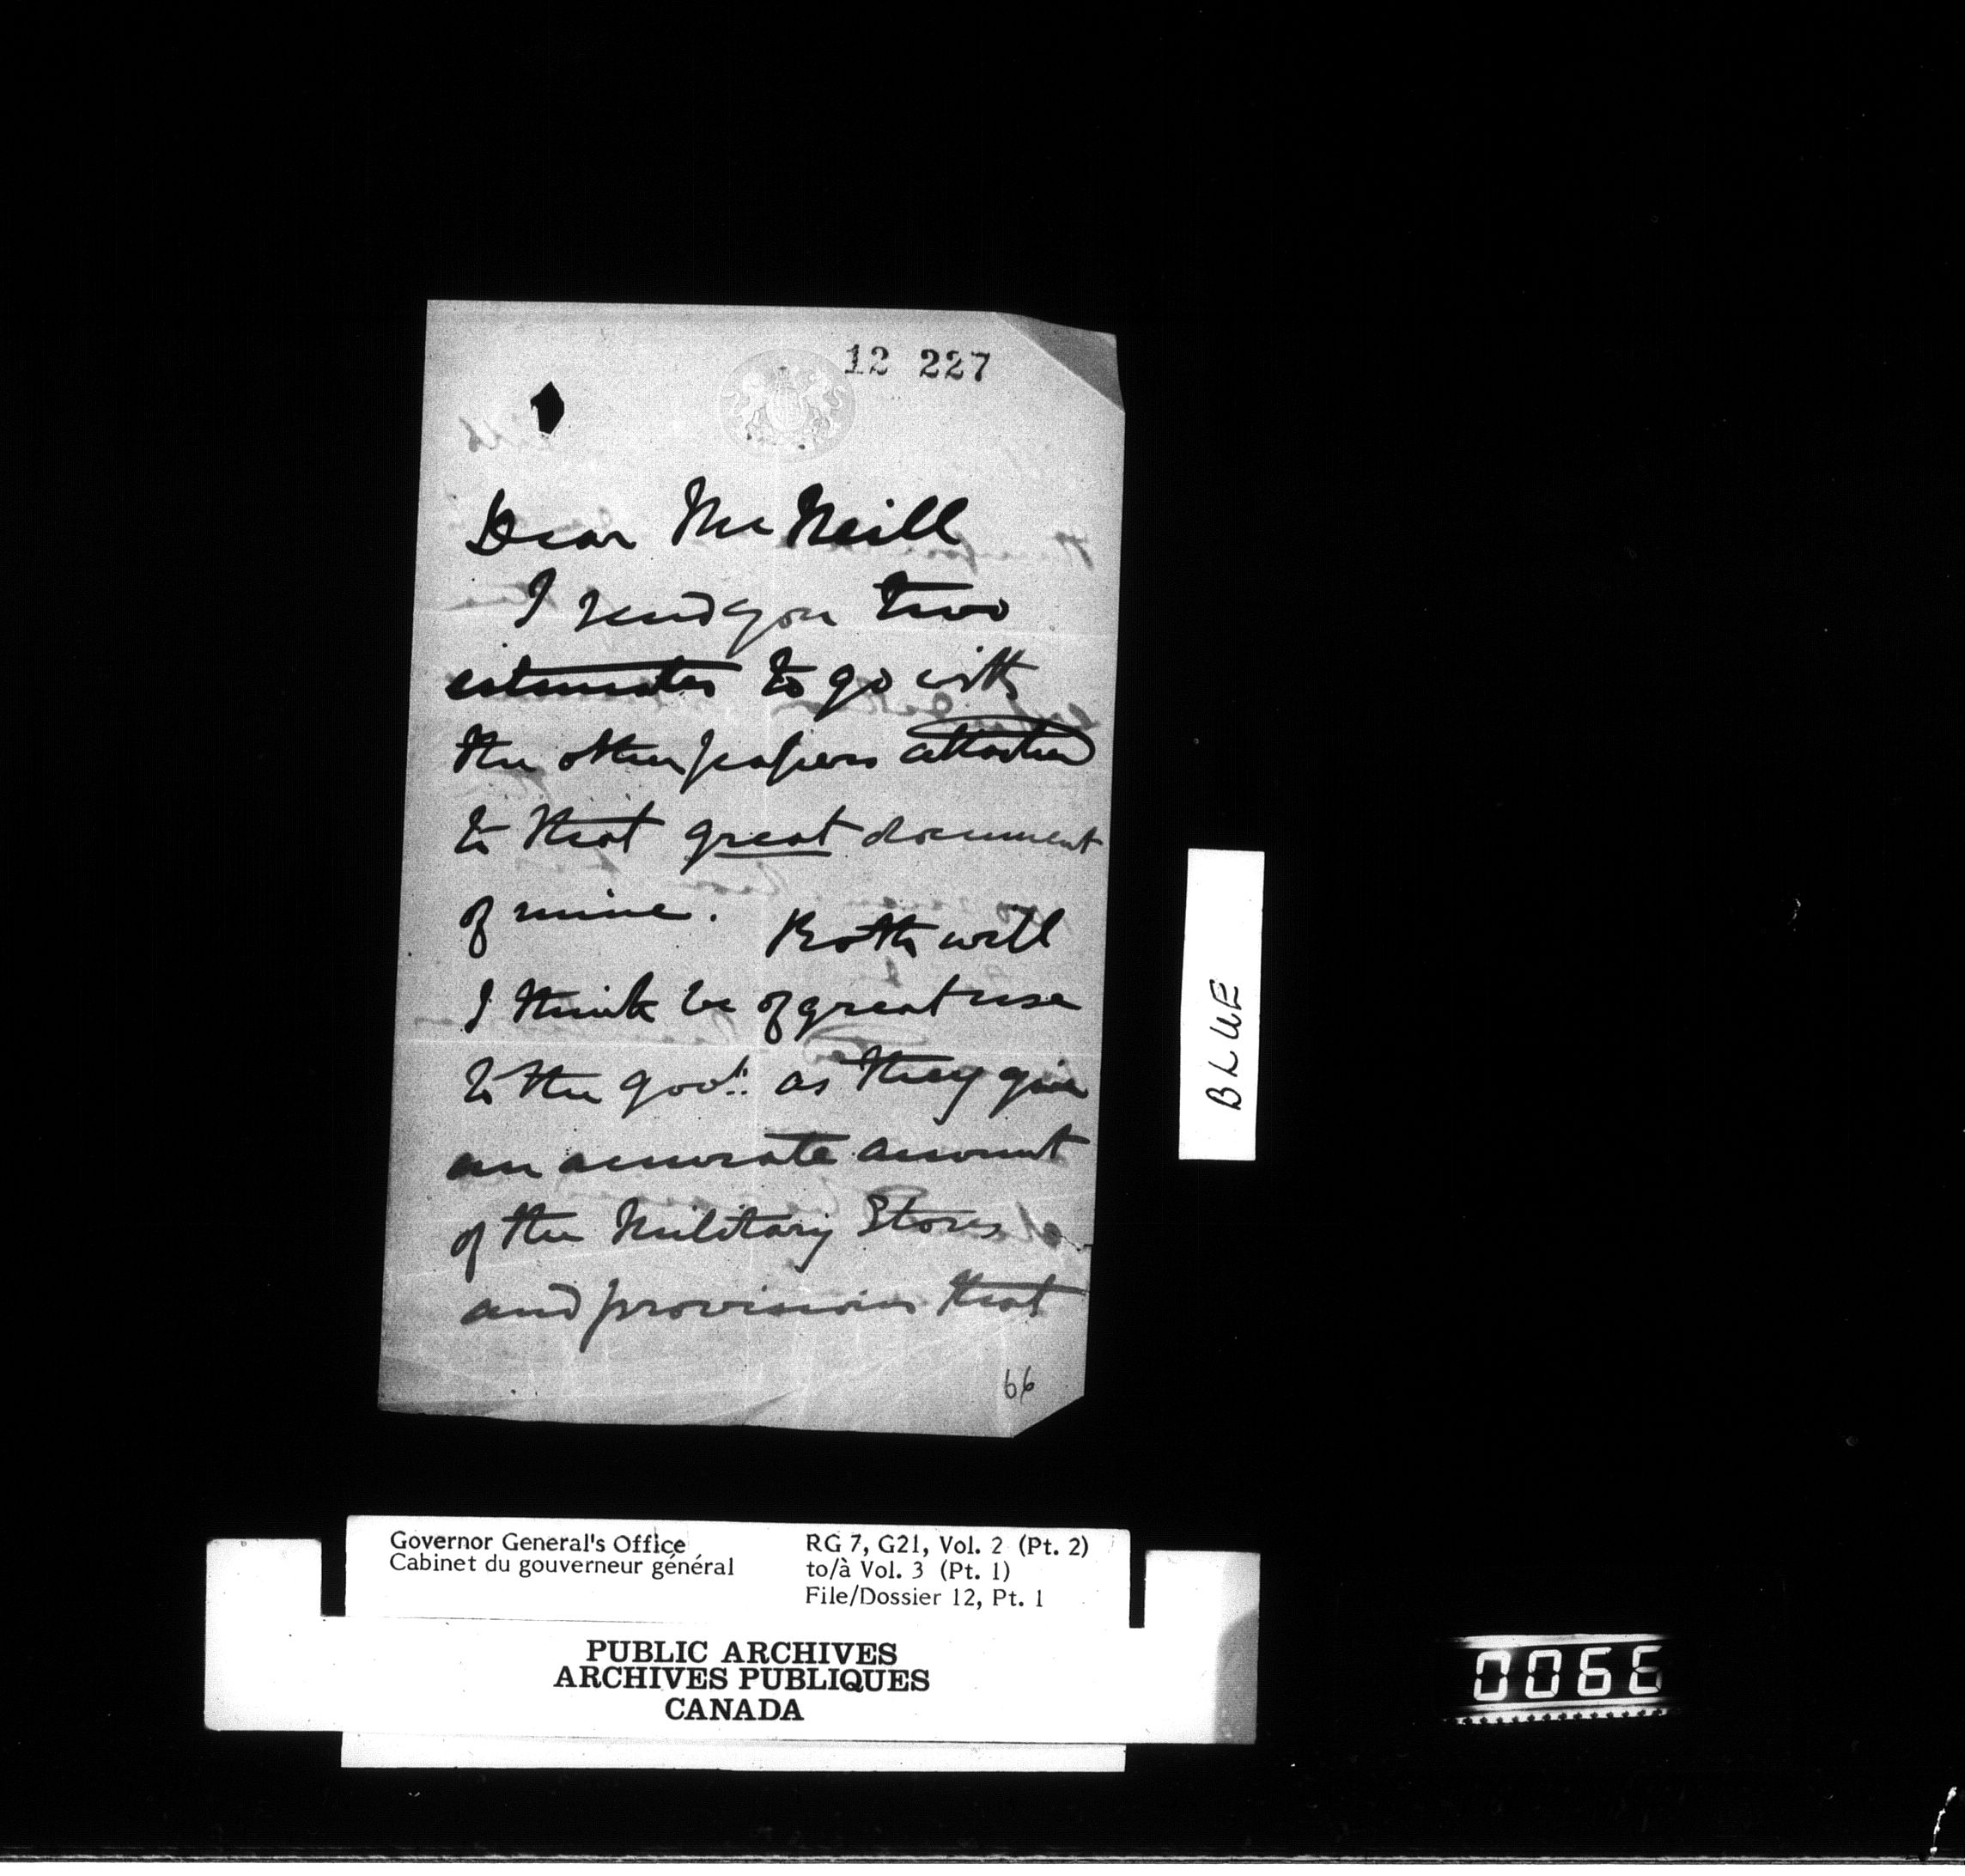 12 227
Dear McNeill
I send you two
estimates to go with
the other papers attached
to that great document
of mine. Both will
I think be of great use
to the govt. as they give
an accurate account
of the Military Stores
and provisions that
66
BLUE
Governor General's Office
Cabinet du gouverneur général
RG 7, G21, Vol. 2 (Pt. 2)
to/à Vol. 3 (Pt. 1)
File/Dossier 12, Pt. 1
PUBLIC ARCHIVES
ARCHIVES PUBLIQUES
CANADA
0066